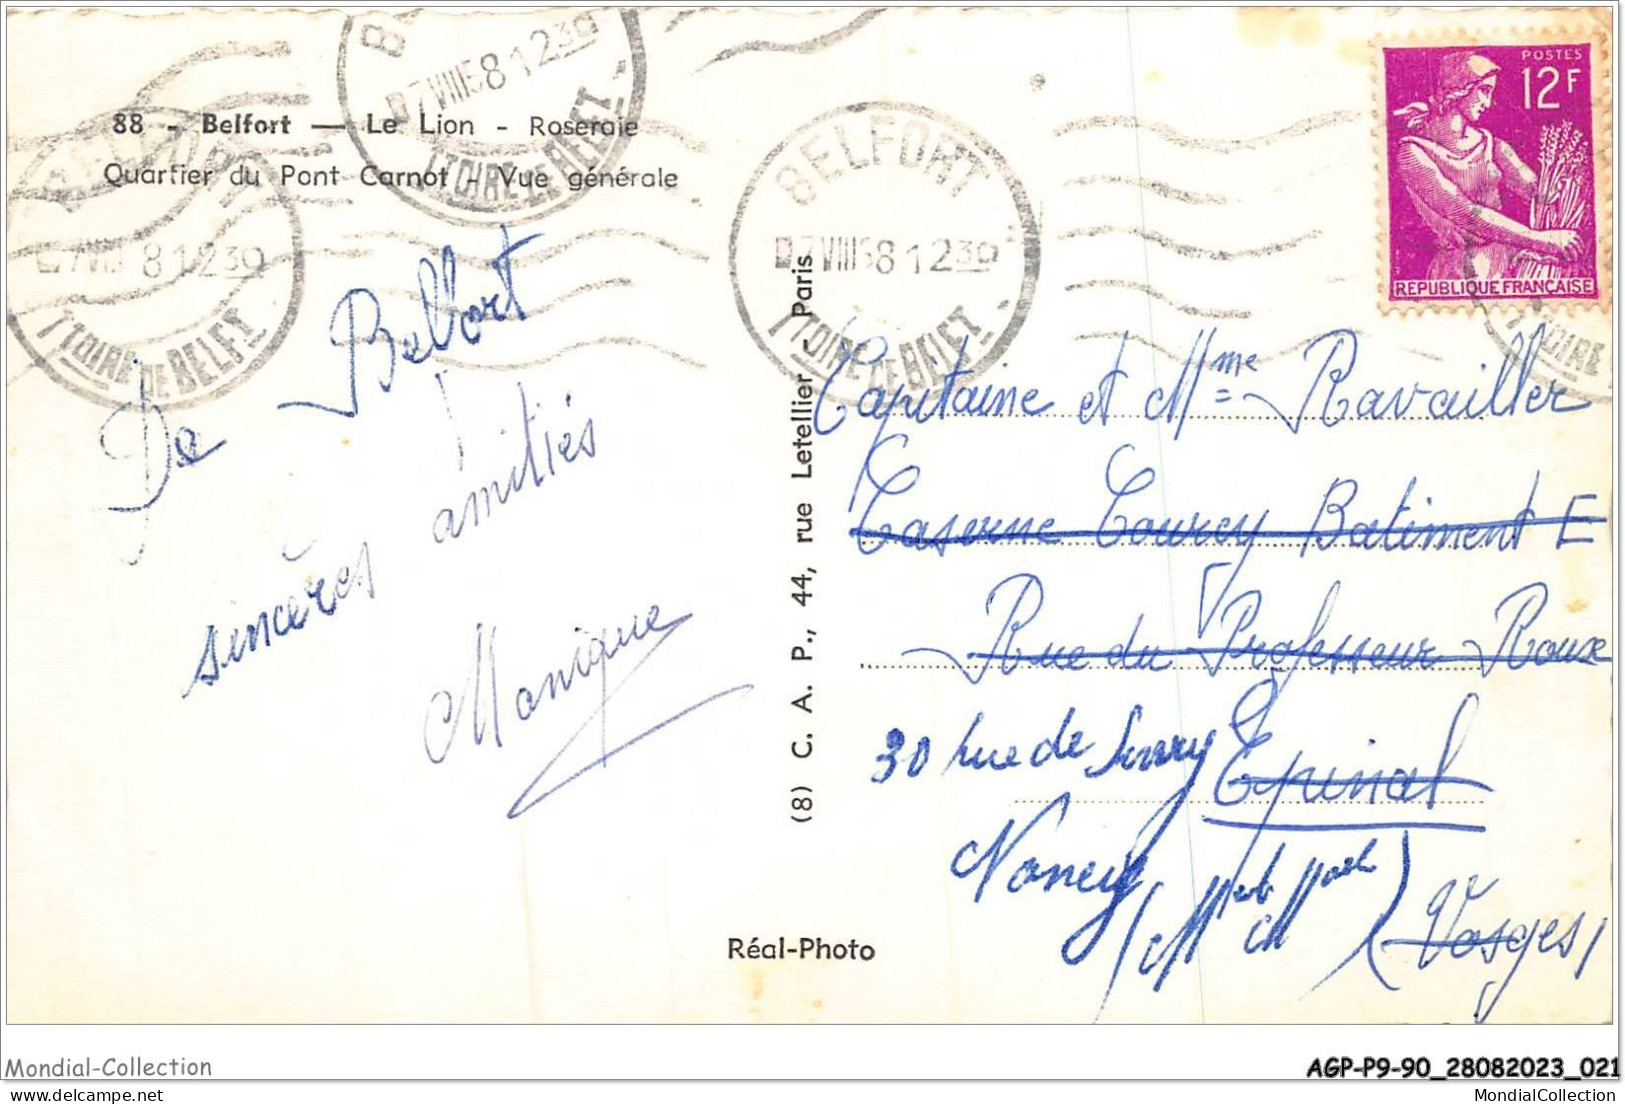 88 - Belfort — Le Lion - Roseraie
Quartier du Pont Carnot - Vue générale
BELFORT
7 VIII 58 12 30
TTOIRE DE BELFT
BELFORT
7 VIII 58 12 30
TTOIRE DE BELFT
BELFORT
7 VIII 58 12 30
TTOIRE DE BELFT
POSTES
12F
REPUBLIQUE FRANÇAISE
TTOIRE
De Belfort
sincères amitiés
Monique
(8) C. A. P., 44, rue Letellier - Paris
Capitaine et Mme Ravailler
Caserne Courcy Batiment E
Rue du Professeur Roux
30 rue de
Epinal
Nancy
(M et M
)
(Vosges)
Réal-Photo
Mondial-Collection
AGP-P9-90_28082023_021
MondialCollection